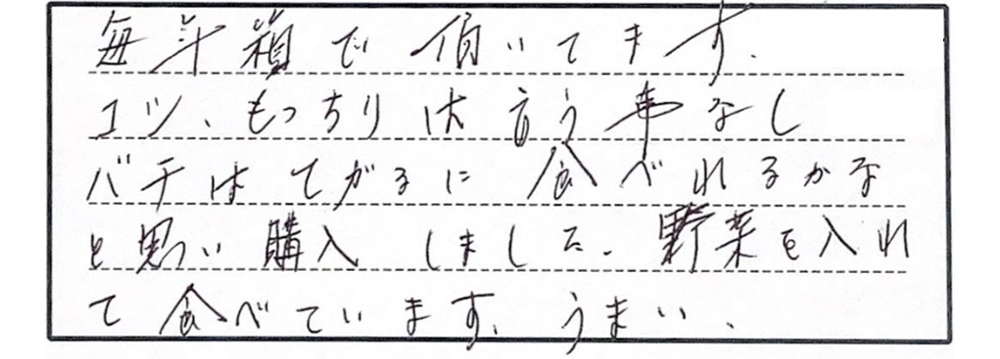 毎年箱で頂いてます.
コツ、もっちりは言う事なし
バチはてがるに食べれるかな
と思い購入しました.野菜を入れ
て食べています.うまい.